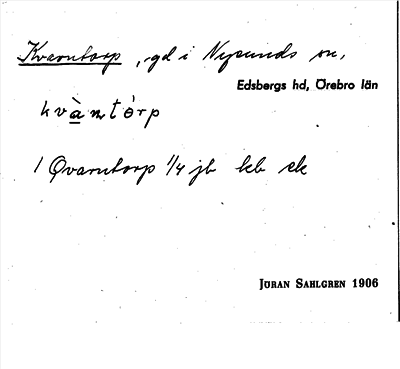 Kvarntorp, gd i Nysunds sn,
Edsbergs hd, Örebro län
kvà̱ntórp
1 Qvarntorp 1/4 jb kb ek
Jöran Sahlgren 1906